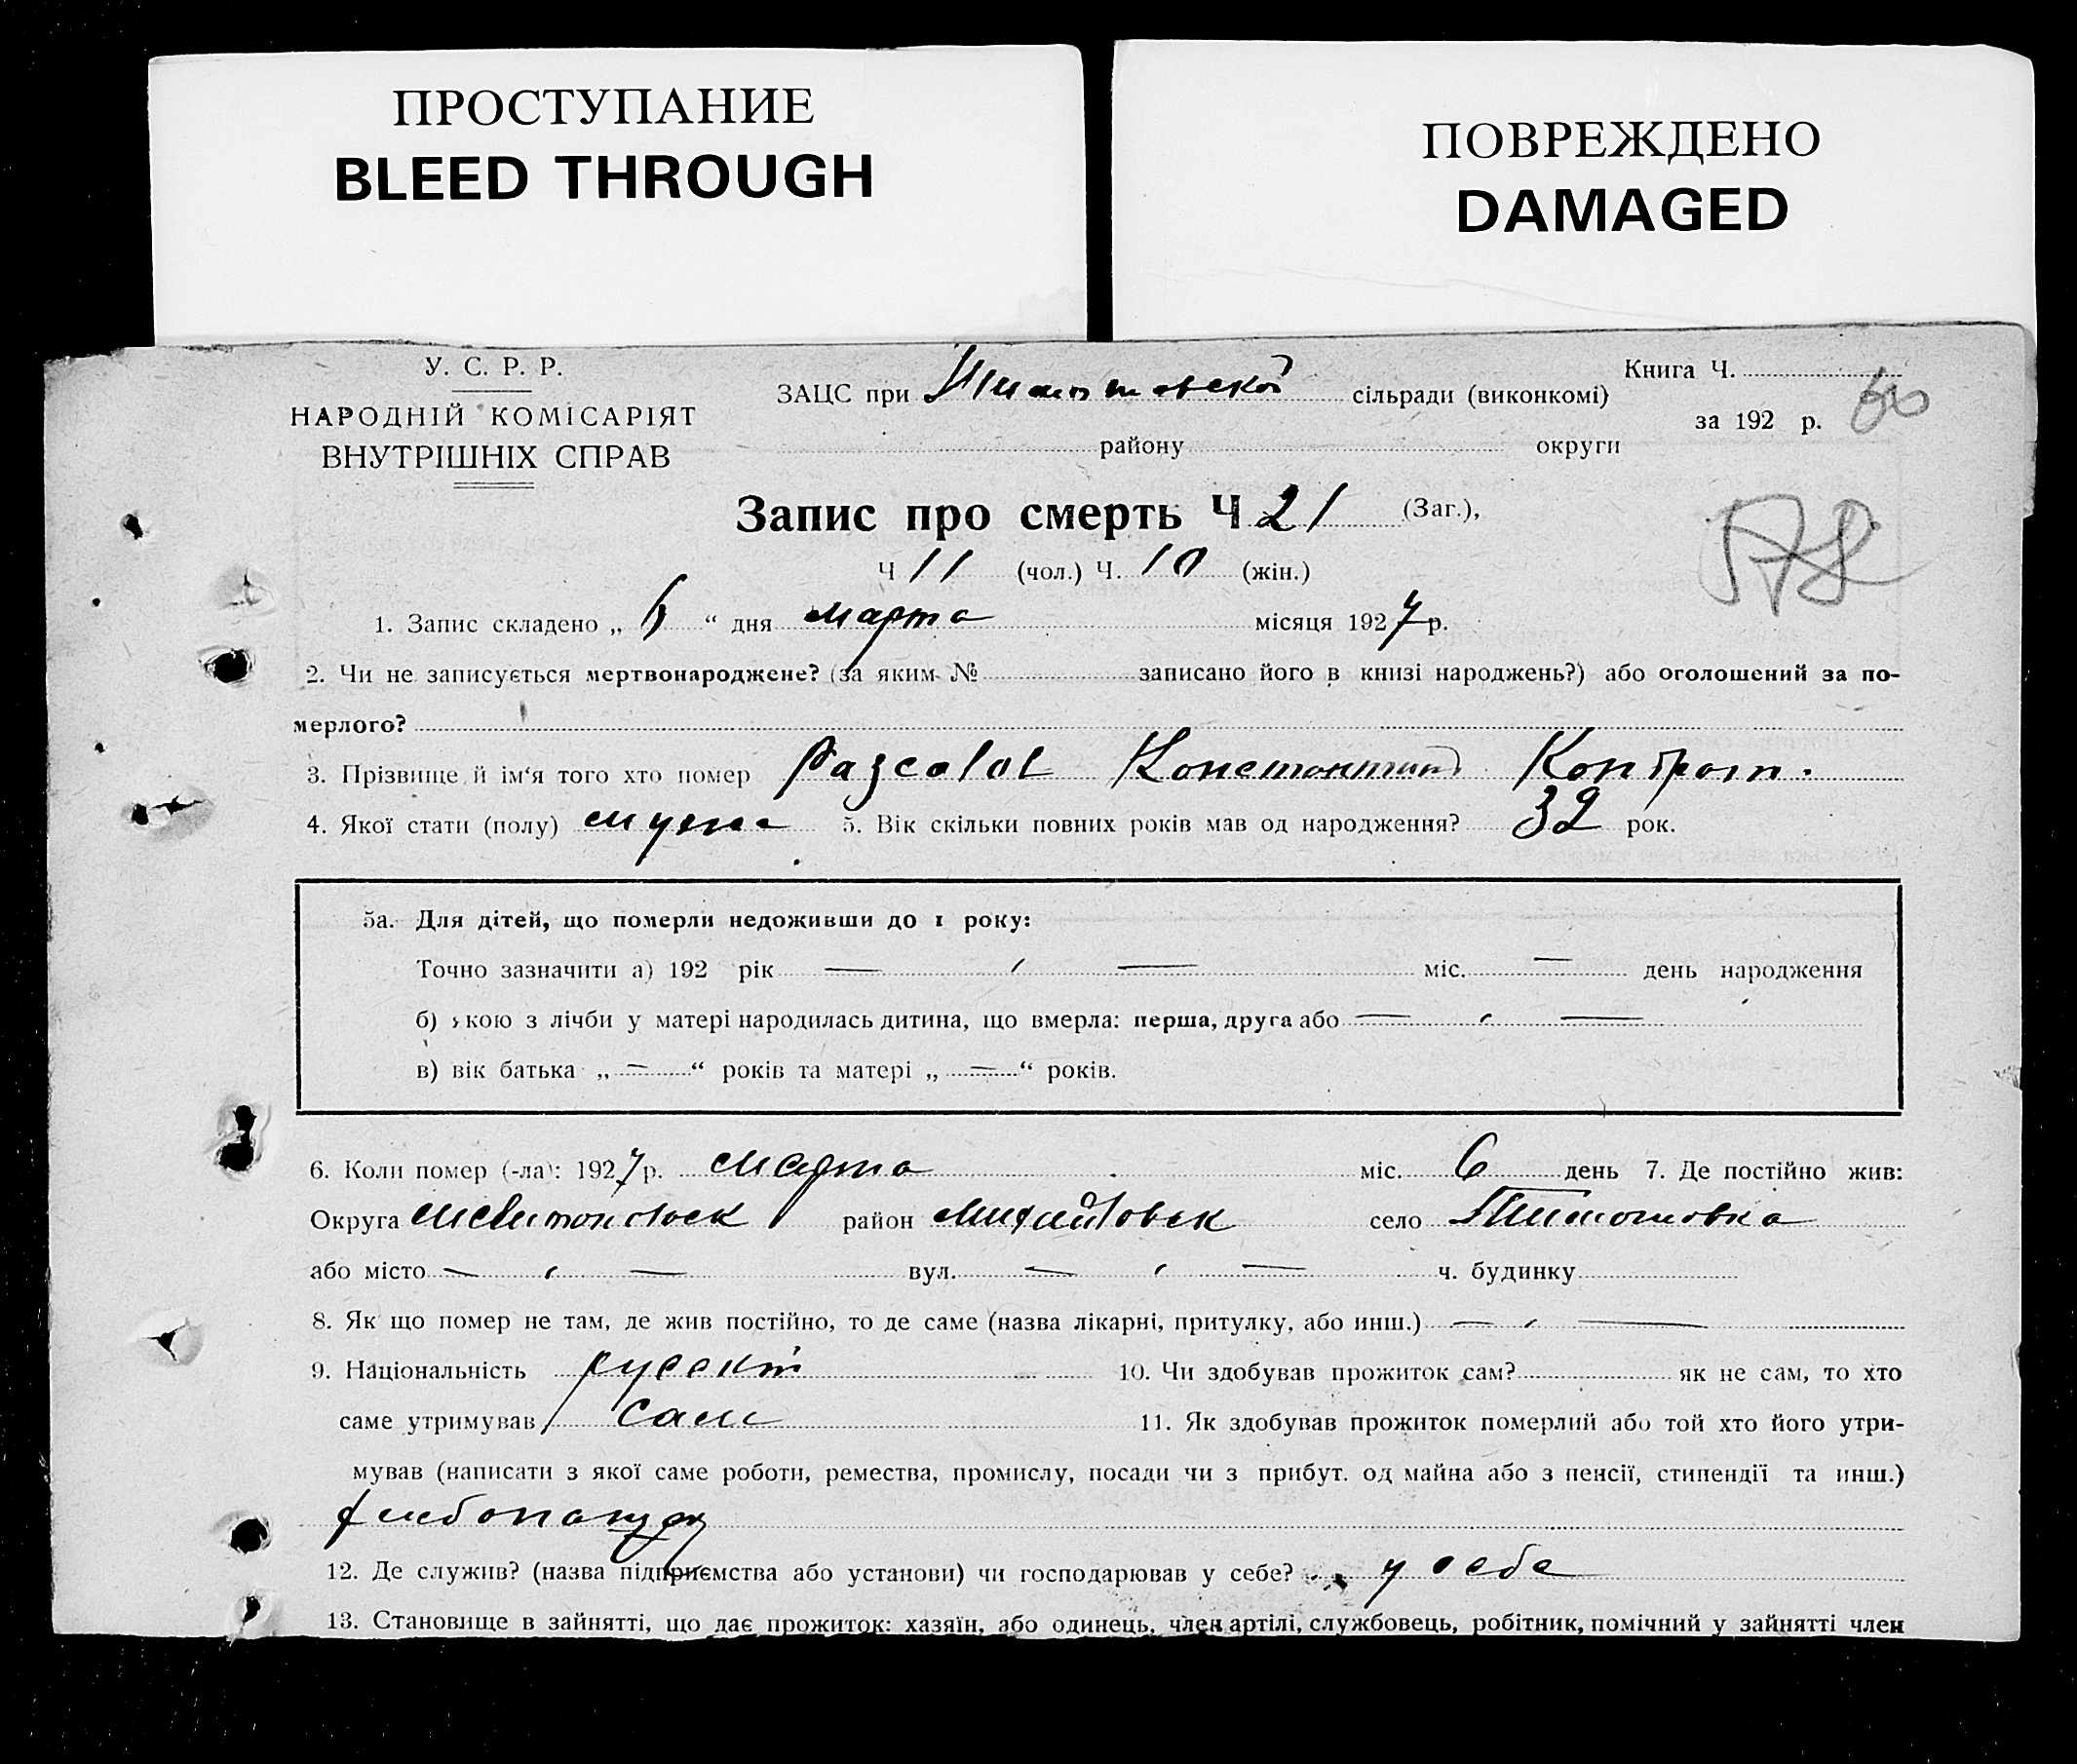 ПРОСТУПАНИЕ
BLEED THROUGH
ПОВРЕЖДЕНО
DAMAGED
У. С. Р. Р.
НАРОДНІЙ КОМІСАРІЯТ
ВНУТРІШНІХ СПРАВ
ЗАЦС при сільради (виконкомі)
району округи
Книга Ч.
за 192 р.
Запис про смерть Ч 21 (Заг.),
Ч 11 (чол.) Ч. 10 (жін.)
1. Запис складено „ “ дня марта місяця 1927 р.
2. Чи не записується мертвонароджене? (за яким № записано його в книзі народжень?) або оголошений за по-
мерлого?
3. Прізвище й ім‘я того хто помер Константин Кондрат.
4. Якої стати (полу) 5. Вік скільки повних років мав од народження? 32 рок.
5а. Для дітей, що померли недоживши до 1 року:
Точно зазначити а) 192 рік — — міс. — день народження
б) якою з лічби у матері народилась дитина, що вмерла: перша, друга або — —
в) вік батька „ — “ років та матері „ — “ років.
6. Коли помер (-ла): 1927 р. марта міс. 6 день 7. Де постійно жив:
Округа район Михайловск село Тимошовка
або місто — — вул. — — ч. будинку
8. Як що помер не там, де жив постійно, то де саме (назва лікарні, притулку, або инш.) — —
9. Національність русский 10. Чи здобував прожиток сам? як не сам, то хто
саме утримував сам 11. Як здобував прожиток померлий або той хто його утри-
мував (написати з якої саме роботи, ремества, промислу, посади чи з прибут. од майна або з пенсії, стипендії та инш.)
12. Де служив? (назва підприємства або установи) чи господарював у себе? у себе
13. Становище в зайнятті, що дає прожиток: хазяїн, або одинець, член артілі, службовець, робітник, помічний у зайнятті член